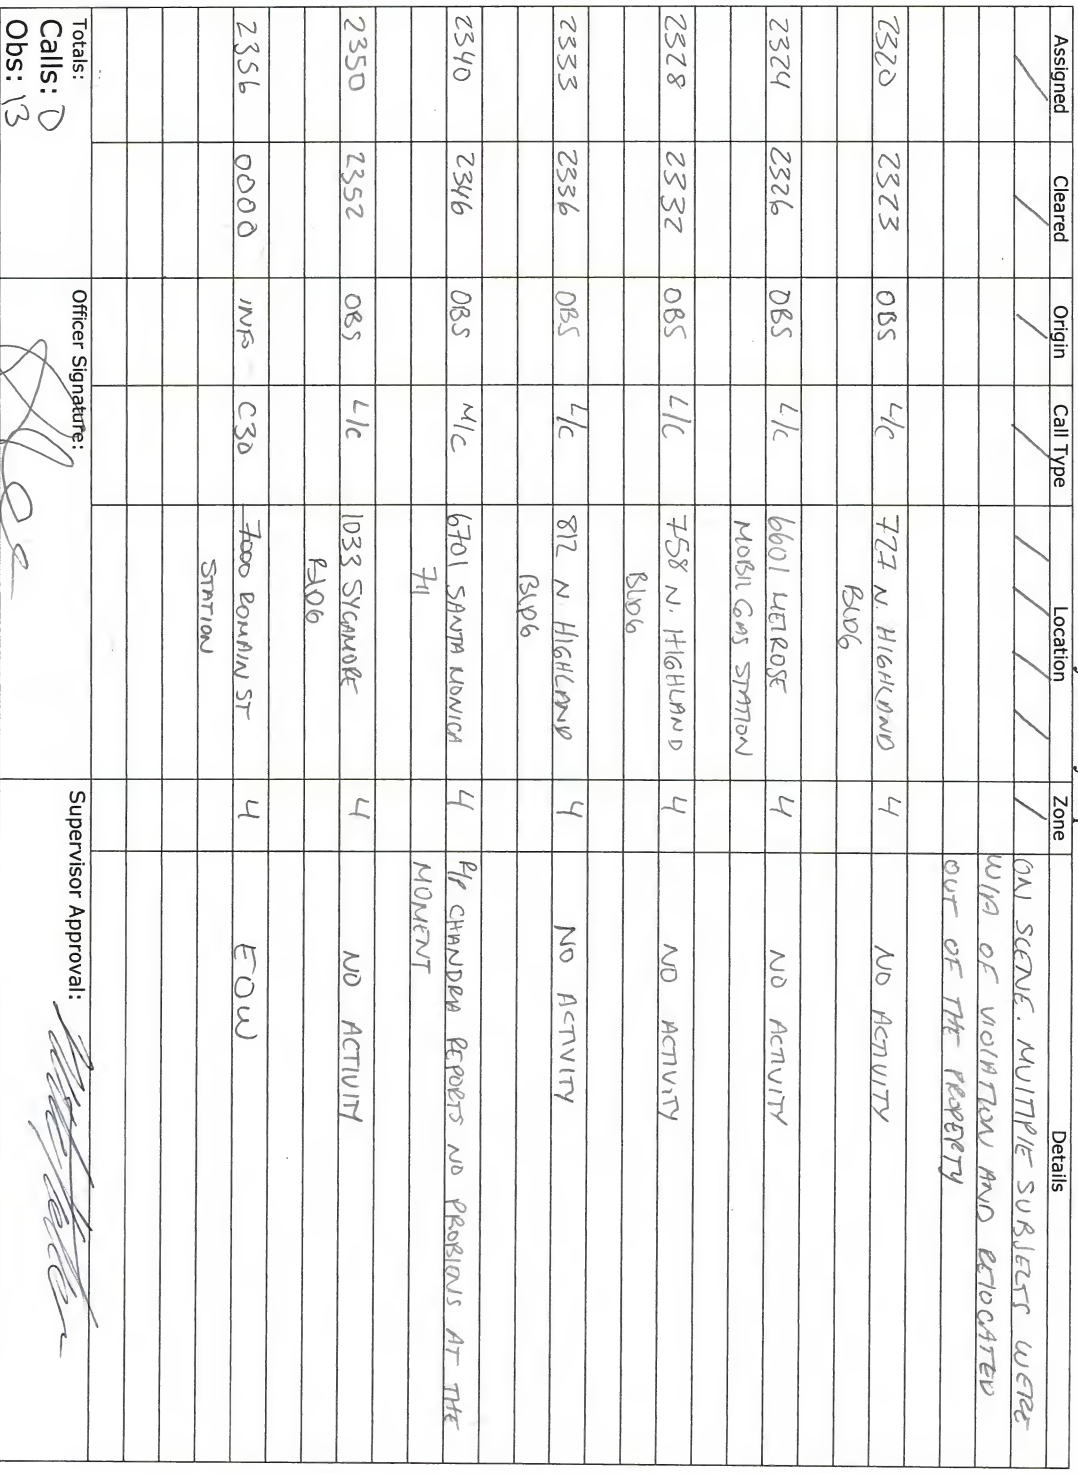 Assigned Cleared Origin Call Type Location Zone Details
/ / / / / / / / / ON SCENE. MULTIPLE SUBJECTS WERE
W/A OF VIOLATION AND RELOCATED
OUT OF THE PROPERTY
2320 2323 OBS L/C 727 N. HIGHLAND 4 NO ACTIVITY
BLDG
2324 2326 OBS L/C 6601 MELROSE 4 NO ACTIVITY
MOBIL GAS STATION
2328 2332 OBS L/C 758 N. HIGHLAND 4 NO ACTIVITY
BLDG
2333 2336 OBS L/C 812 N HIGHLAND 4 NO ACTIVITY
BLDG
2340 2346 OBS M/C 6701 SANTA MONICA 4 P/R CHANDRA REPORTS NO PROBLEMS AT THE
711 MOMENT
2350 2352 OBS L/C 1033 SYCAMORE 4 NO ACTIVITY
BLDG
2356 0000 INFO C30 7000 ROMAIN ST 4 EOW
STATION
Totals: Officer Signature: Supervisor Approval:
Calls: 0
Obs: 13